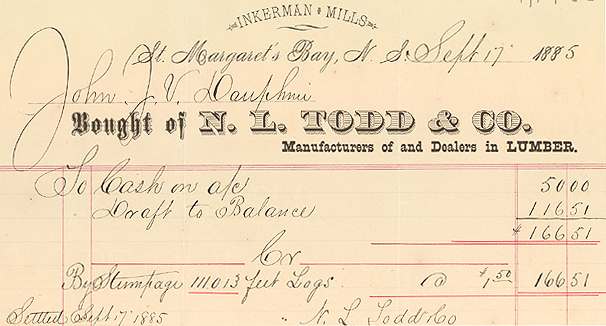 INKERMAN MILLS
St. Margaret's Bay, N. S. Sept 17 1885
John J. V. Dauphnii
Bought of N. L. TODD & CO.
Manufacturers of and Dealers in LUMBER.
To Cash on a/c 50 00
" Draft to Balance 116 51
$ 166 51
Cr
By Stumpage 111013 feet Logs @ $1.50 166 51
Settled Sept 17 1885 " N. L Todd & Co